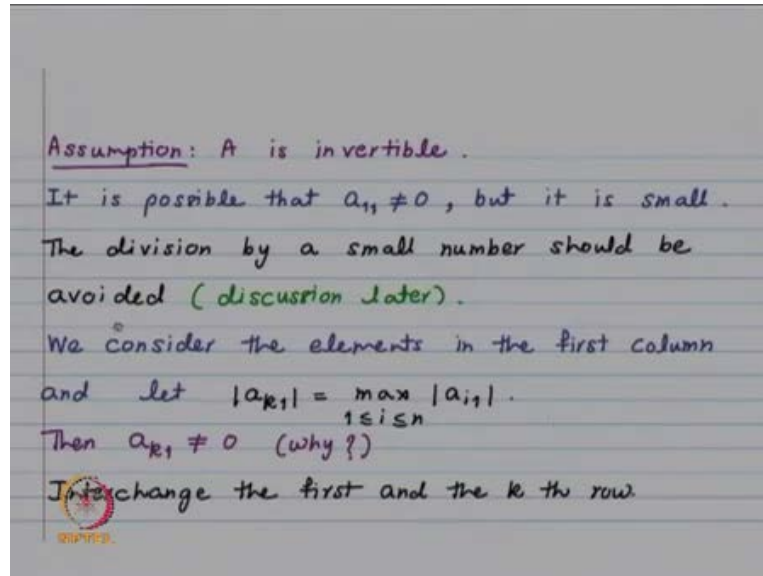 Assumption: A is invertible.
It is possible that a₁₁ ≠ 0, but it is small.
The division by a small number should be
avoided (discussion later).
We consider the elements in the first column
and let |aₖ₁| = max |aᵢ₁|.
1≤i≤n
Then aₖ₁ ≠ 0 (why?)
Interchange the first and the k th row.
NPTEL